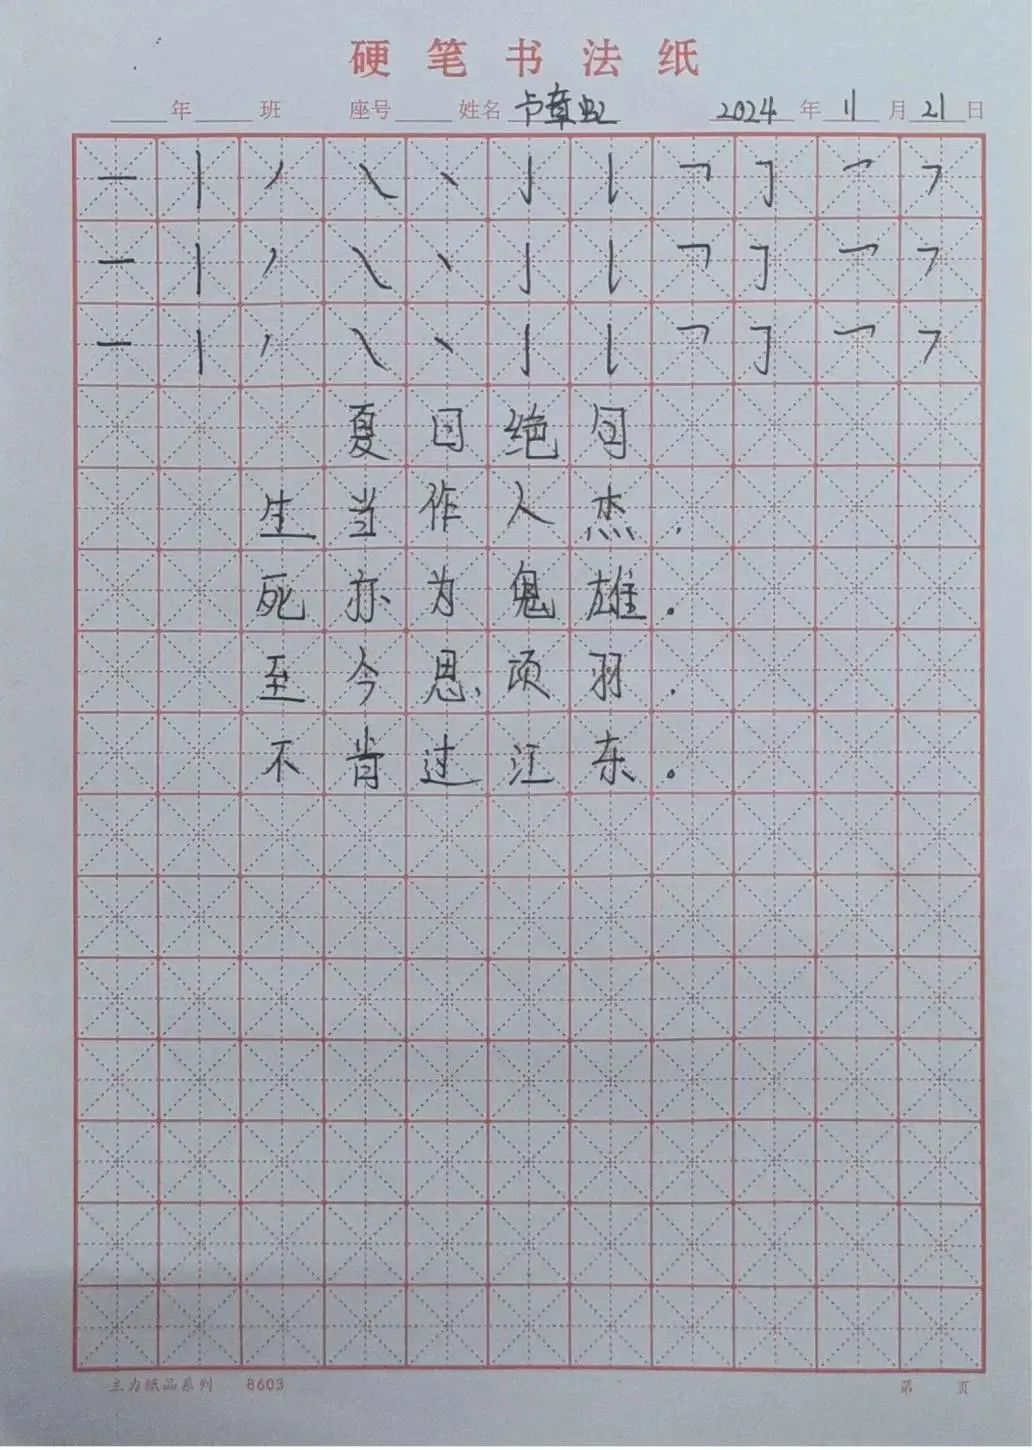 硬笔书法纸
年 班 座号 姓名 卢章虹 2024 年 11 月 21 日
一 丨 丿 ㇏ 丶 亅 丨 ㇕ 𠃌 乛 ㇇
一 丨 丿 ㇏ 丶 亅 丨 ㇕ 𠃌 乛 ㇇
一 丨 丿 ㇏ 丶 亅 丨 ㇕ 𠃌 乛 ㇇
夏日绝句
生当作人杰，
死亦为鬼雄。
至今思项羽，
不肯过江东。
主力纸品系列 8603 第 页